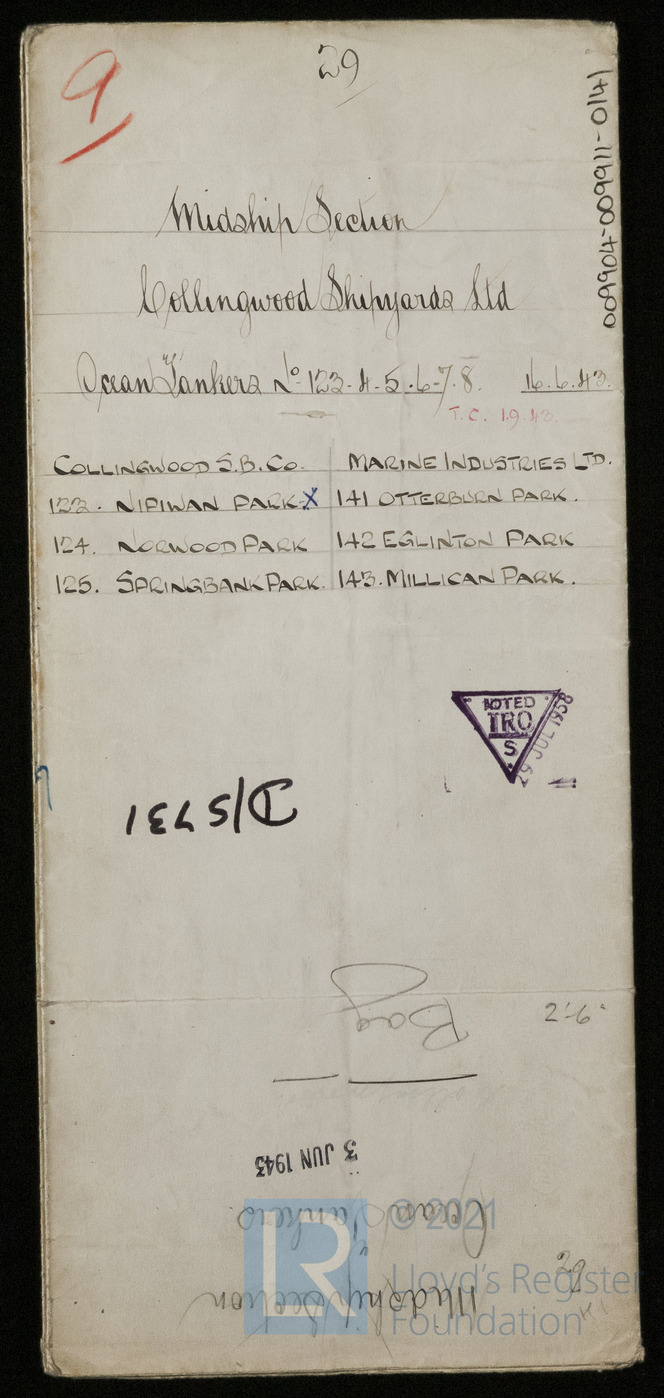 9
29
009904-009911-0141
Midship Section
Collingwood Shipyards Ltd
Ocean "Tankers" No 123-4-5-6-7-8. 16.6.43.
T.C. 1.9.43.
COLLINGWOOD S.B. Co. MARINE INDUSTRIES LTD.
123. NIPIWAN PARK-X 141 OTTERBURN PARK.
124. NORWOOD PARK 142 EGLINTON PARK
125. SPRINGBANK PARK. 143. MILLICAN PARK.
NOTED
TRO
S
29 JUL 1958
D/S 731
Bag
2'-6"
3 JUN 1943
Ocean Tankers.
Midship Section
29
© 2021
Lloyd's Register
Foundation
LR